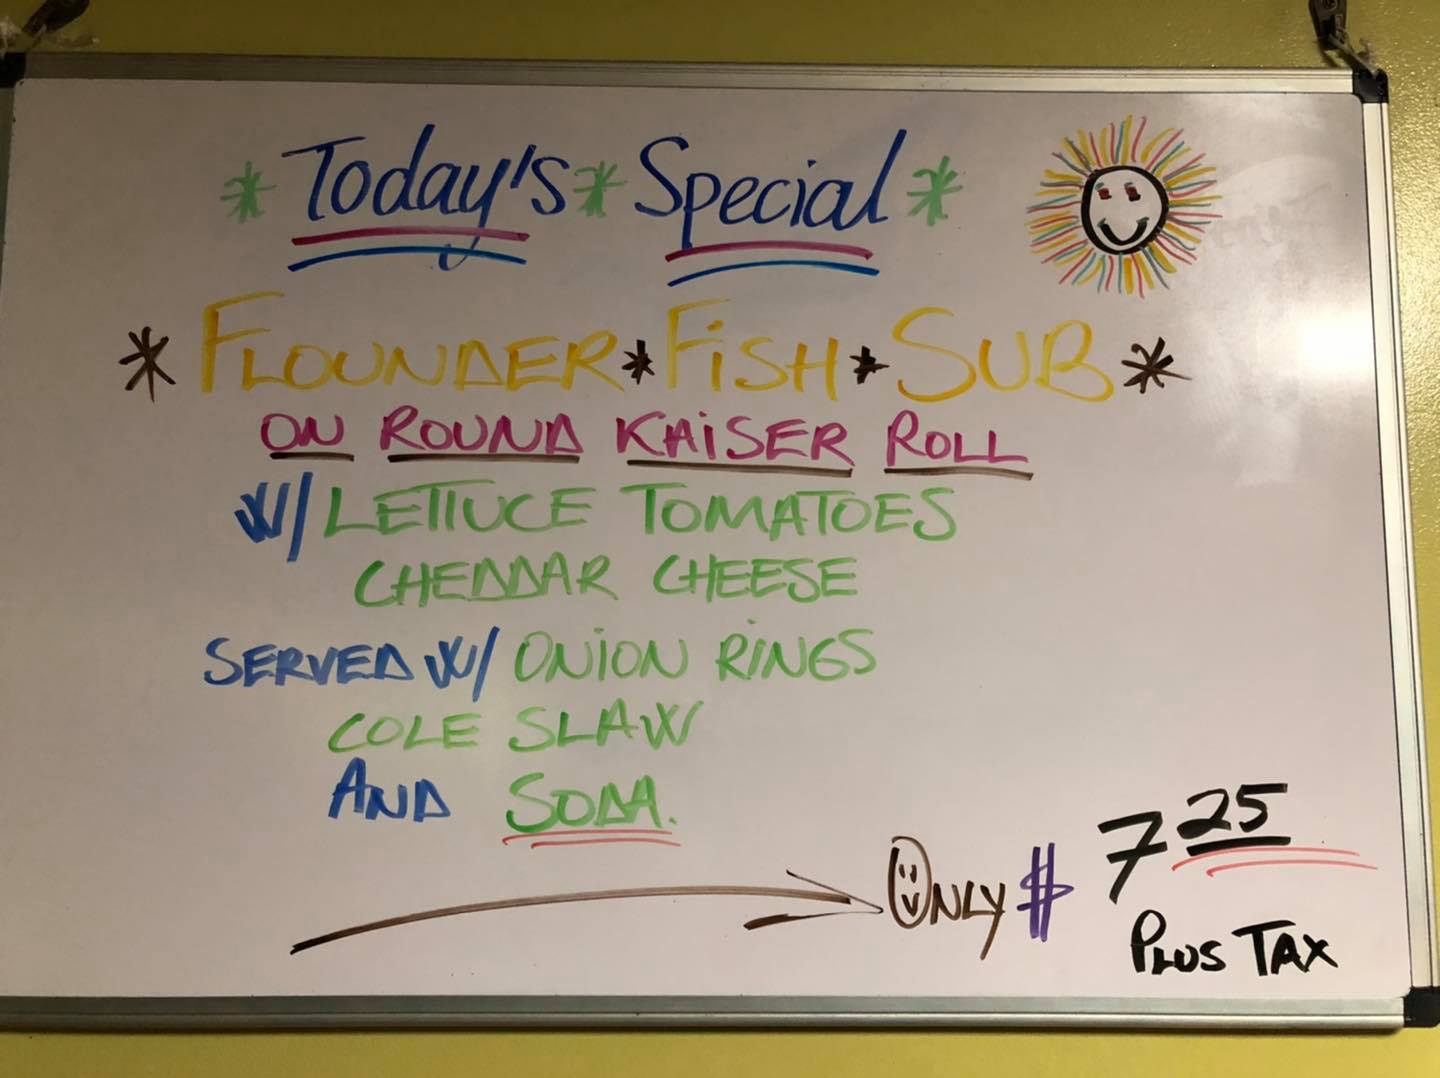 * Today's * Special *
* FLOUNDER * FiSH * SUB *
ON ROUND KAiSER ROLL
W/ LETTUCE TOMATOES
CHEDDAR CHEESE
SERVED W/ ONiON RiNGS
COLE SLAW
AND SODA.
ONLY $ 7 25
PLUS TAX